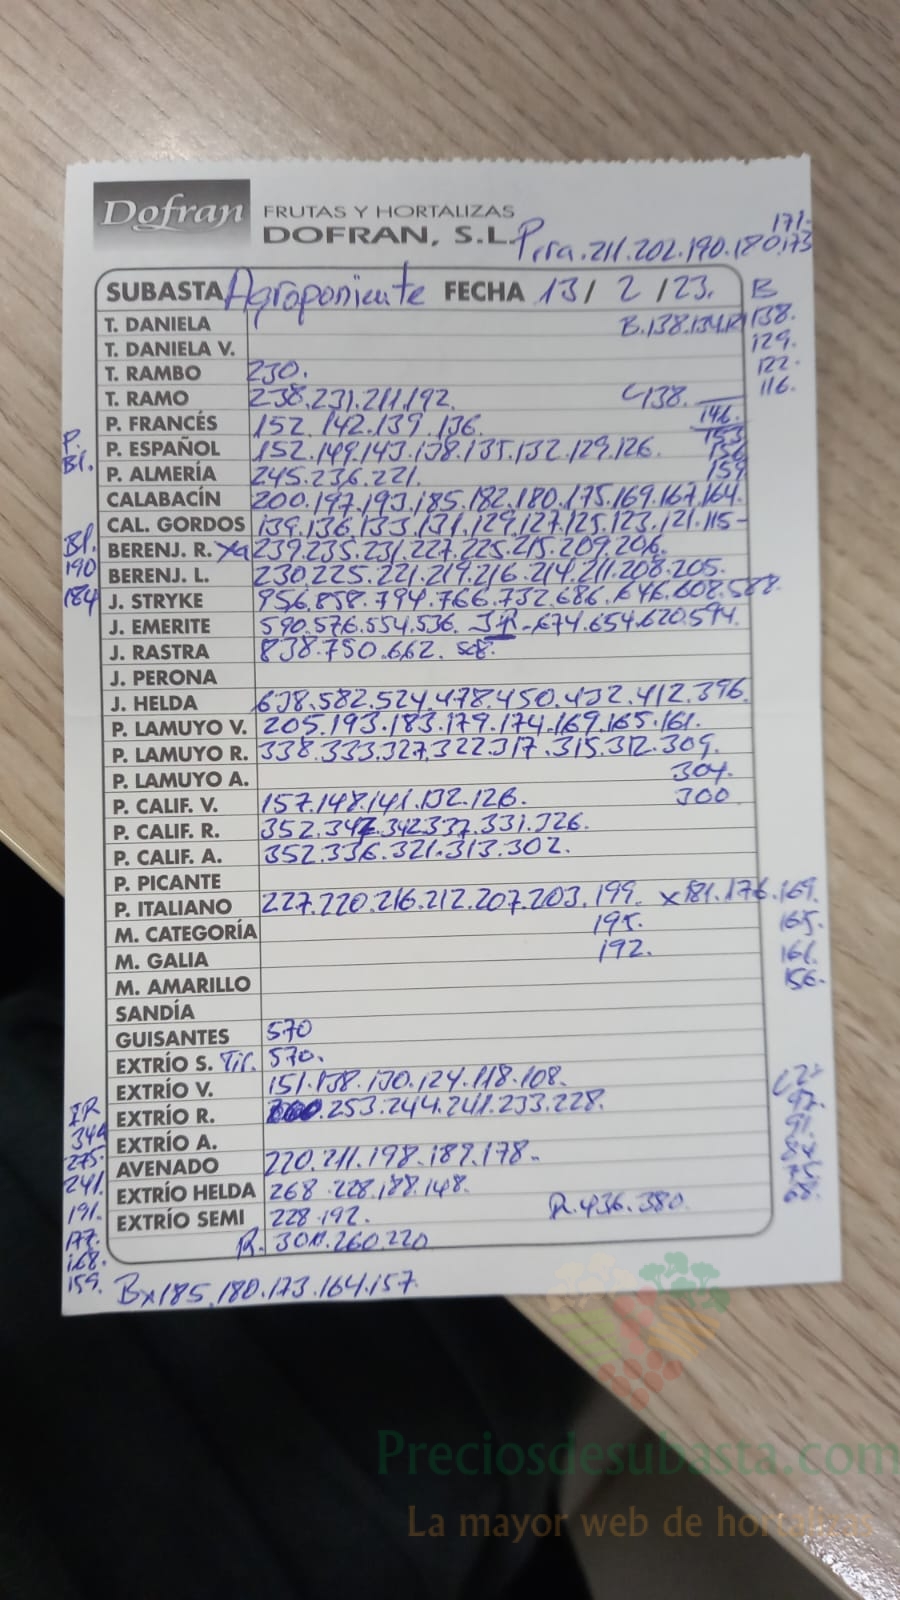 Dofran FRUTAS Y HORTALIZAS
DOFRAN, S.L. Prra. 211. 202. 190. 180. 173
171.
SUBASTA Agroponiente FECHA 13/ 2 /23. B
T. DANIELA B. 138. 134. 138.
T. DANIELA V. 129.
T. RAMBO 230. 122.
T. RAMO 238. 231. 211. 192. C 138. 116.
P. FRANCÉS 152. 142. 139. 136. 146.
P. P. ESPAÑOL 152. 149. 143. 138. 135. 132. 129. 126. 153 156
Bl. P. ALMERÍA 245. 236. 221. 159
CALABACÍN 200. 197. 193. 185. 182. 180. 175. 169. 167. 164.
CAL. GORDOS 139. 136. 133. 131. 129. 127. 125. 123. 121. 115-
Bl. BERENJ. R. Xa 239. 235. 231. 227. 225. 215. 209. 206.
190 BERENJ. L. 230. 225. 221. 219. 216. 214. 211. 208. 205.
184 J. STRYKE 956. 858. 794. 766. 732. 686. 646. 608. 588.
J. EMERITE 590. 576. 554. 536. - 674. 654. 620. 594.
J. RASTRA 838. 750. 662.
J. PERONA
J. HELDA 638. 582. 524. 478. 450. 432. 412. 396.
P. LAMUYO V. 205. 193. 183. 179. 174. 169. 165. 161.
P. LAMUYO R. 338. 333. 327. 322. 317. 315. 312. 309.
P. LAMUYO A. 304.
P. CALIF. V. 157. 148. 141. 132. 126. 300
P. CALIF. R. 352. 347. 342. 337. 331. 326.
P. CALIF. A. 352. 336. 321. 313. 302.
P. PICANTE
P. ITALIANO 227. 220. 216. 212. 207. 203. 199. x 181. 176. 169.
M. CATEGORÍA 195. 165.
M. GALIA 192. 161.
M. AMARILLO 156.
SANDÍA
GUISANTES 570
EXTRÍO S. Tir. 570.
EXTRÍO V. 151. 138. 130. 124. 118. 108.
EXTRÍO R. 253. 244. 241. 233. 228. 97.
344 EXTRÍO A. 91.
275. AVENADO 220. 211. 198. 189. 178. 84
241. EXTRÍO HELDA 268. 228. 188. 148.
191. EXTRÍO SEMI 228. 192. R. 436. 380. 68.
177. R. 260. 220
168.
159. Bx 185. 180. 173. 164. 157.
Preciosdesubasta.com
La mayor web de hortalizas